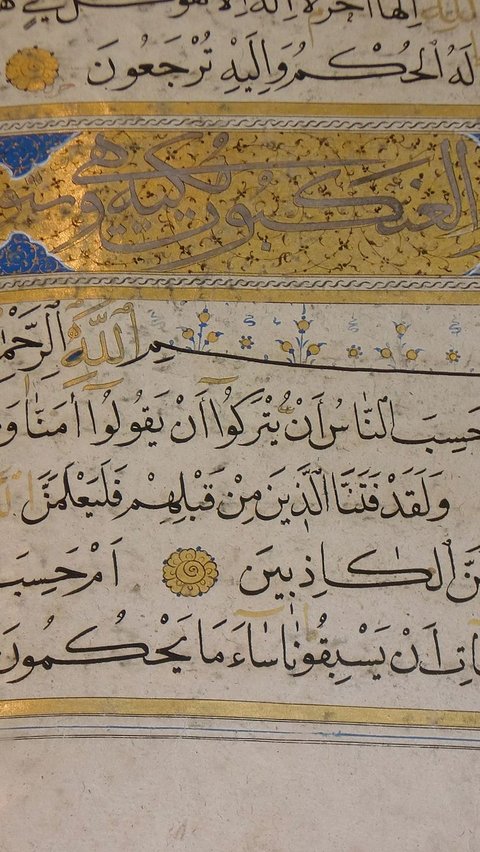 إِلَٰهًا اٰخَرَ لَا إِلَٰهَ إِلَّا هُوَ كُلُّ شَيْءٍ
لَهُ الْحُكْمُ وَإِلَيْهِ تُرْجَعُونَ
العنكبوت مكية وهي
ـمِ اللّٰهِ الرَّحْمٰـ
حَسِبَ النَّاسُ أَنْ يُتْرَكُوا أَنْ يَقُولُوا اٰمَنَّا وَ
وَلَقَدْ فَتَنَّا الَّذِينَ مِنْ قَبْلِهِمْ فَلَيَعْلَمَنَّ
ـنَّ الْكَاذِبِينَ اَمْ حَسِبَ
ـاتِ اَنْ يَسْبِقُونَا سَاءَ مَا يَحْكُمُونَ